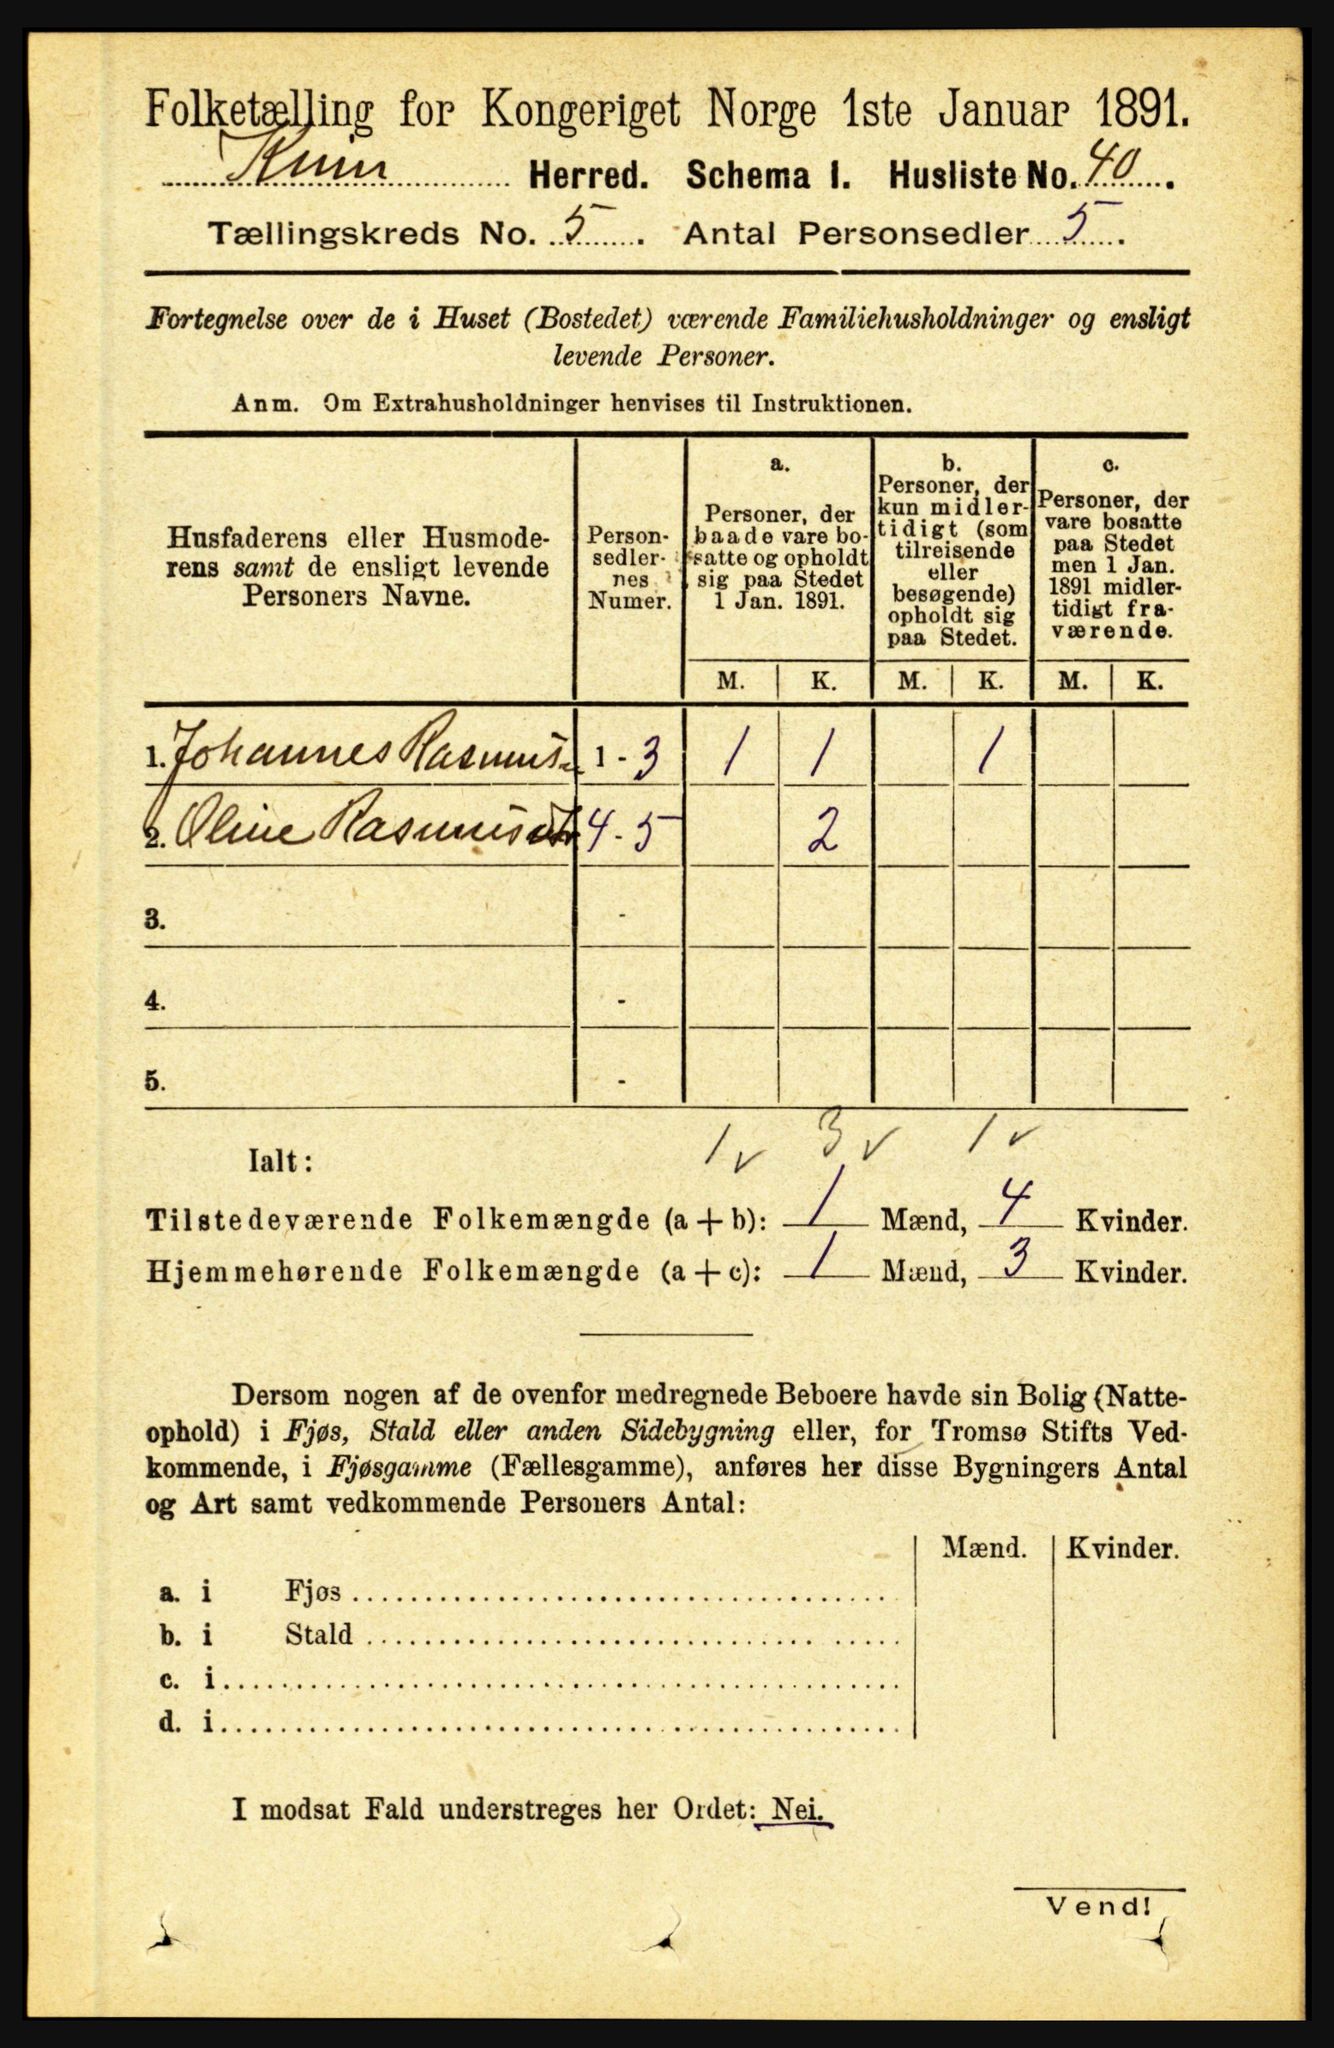 Folketælling for Kongeriget Norge 1ste Januar 1891.
Kinn Herred. Schema I. Husliste No. 40.
Tællingskreds No. 5. Antal Personsedler 5.
Fortegnelse over de i Huset (Bostedet) værende Familiehusholdninger og ensligt
levende Personer.
Anm. Om Extrahusholdninger henvises til Instruktionen.
Husfaderens eller Husmode-
rens samt de ensligt levende
Personers Navne.
Person-
sedler-
nes
Numer.
a.
Personer, der
baade vare bo-
satte og opholdt
sig paa Stedet
1 Jan. 1891.
b.
Personer, der
kun midler-
tidigt (som
tilreisende
eller
besøgende)
opholdt sig
paa Stedet.
c.
Personer, der
vare bosatte
paa Stedet
men 1 Jan.
1891 midler-
tidigt fra-
værende.
M. K. M. K. M. K.
1. Johannes Rasmus. 1 - 3 1 1 1
2. Oline Rasmusdtr 4 - 5 2
3. -
4. -
5. -
1 v 3 v 1 v
Ialt:
Tilstedeværende Folkemængde (a + b): 1 Mænd, 4 Kvinder.
Hjemmehørende Folkemængde (a + c): 1 Mænd, 3 Kvinder.
Dersom nogen af de ovenfor medregnede Beboere havde sin Bolig (Natte-
ophold) i Fjøs, Stald eller anden Sidebygning eller, for Tromsø Stifts Ved-
kommende, i Fjøsgamme (Fællesgamme), anføres her disse Bygningers Antal
og Art samt vedkommende Personers Antal:
Mænd. Kvinder.
a. i Fjøs
b. i Stald
c. i
d. i
I modsat Fald understreges her Ordet: Nei.
Vend!